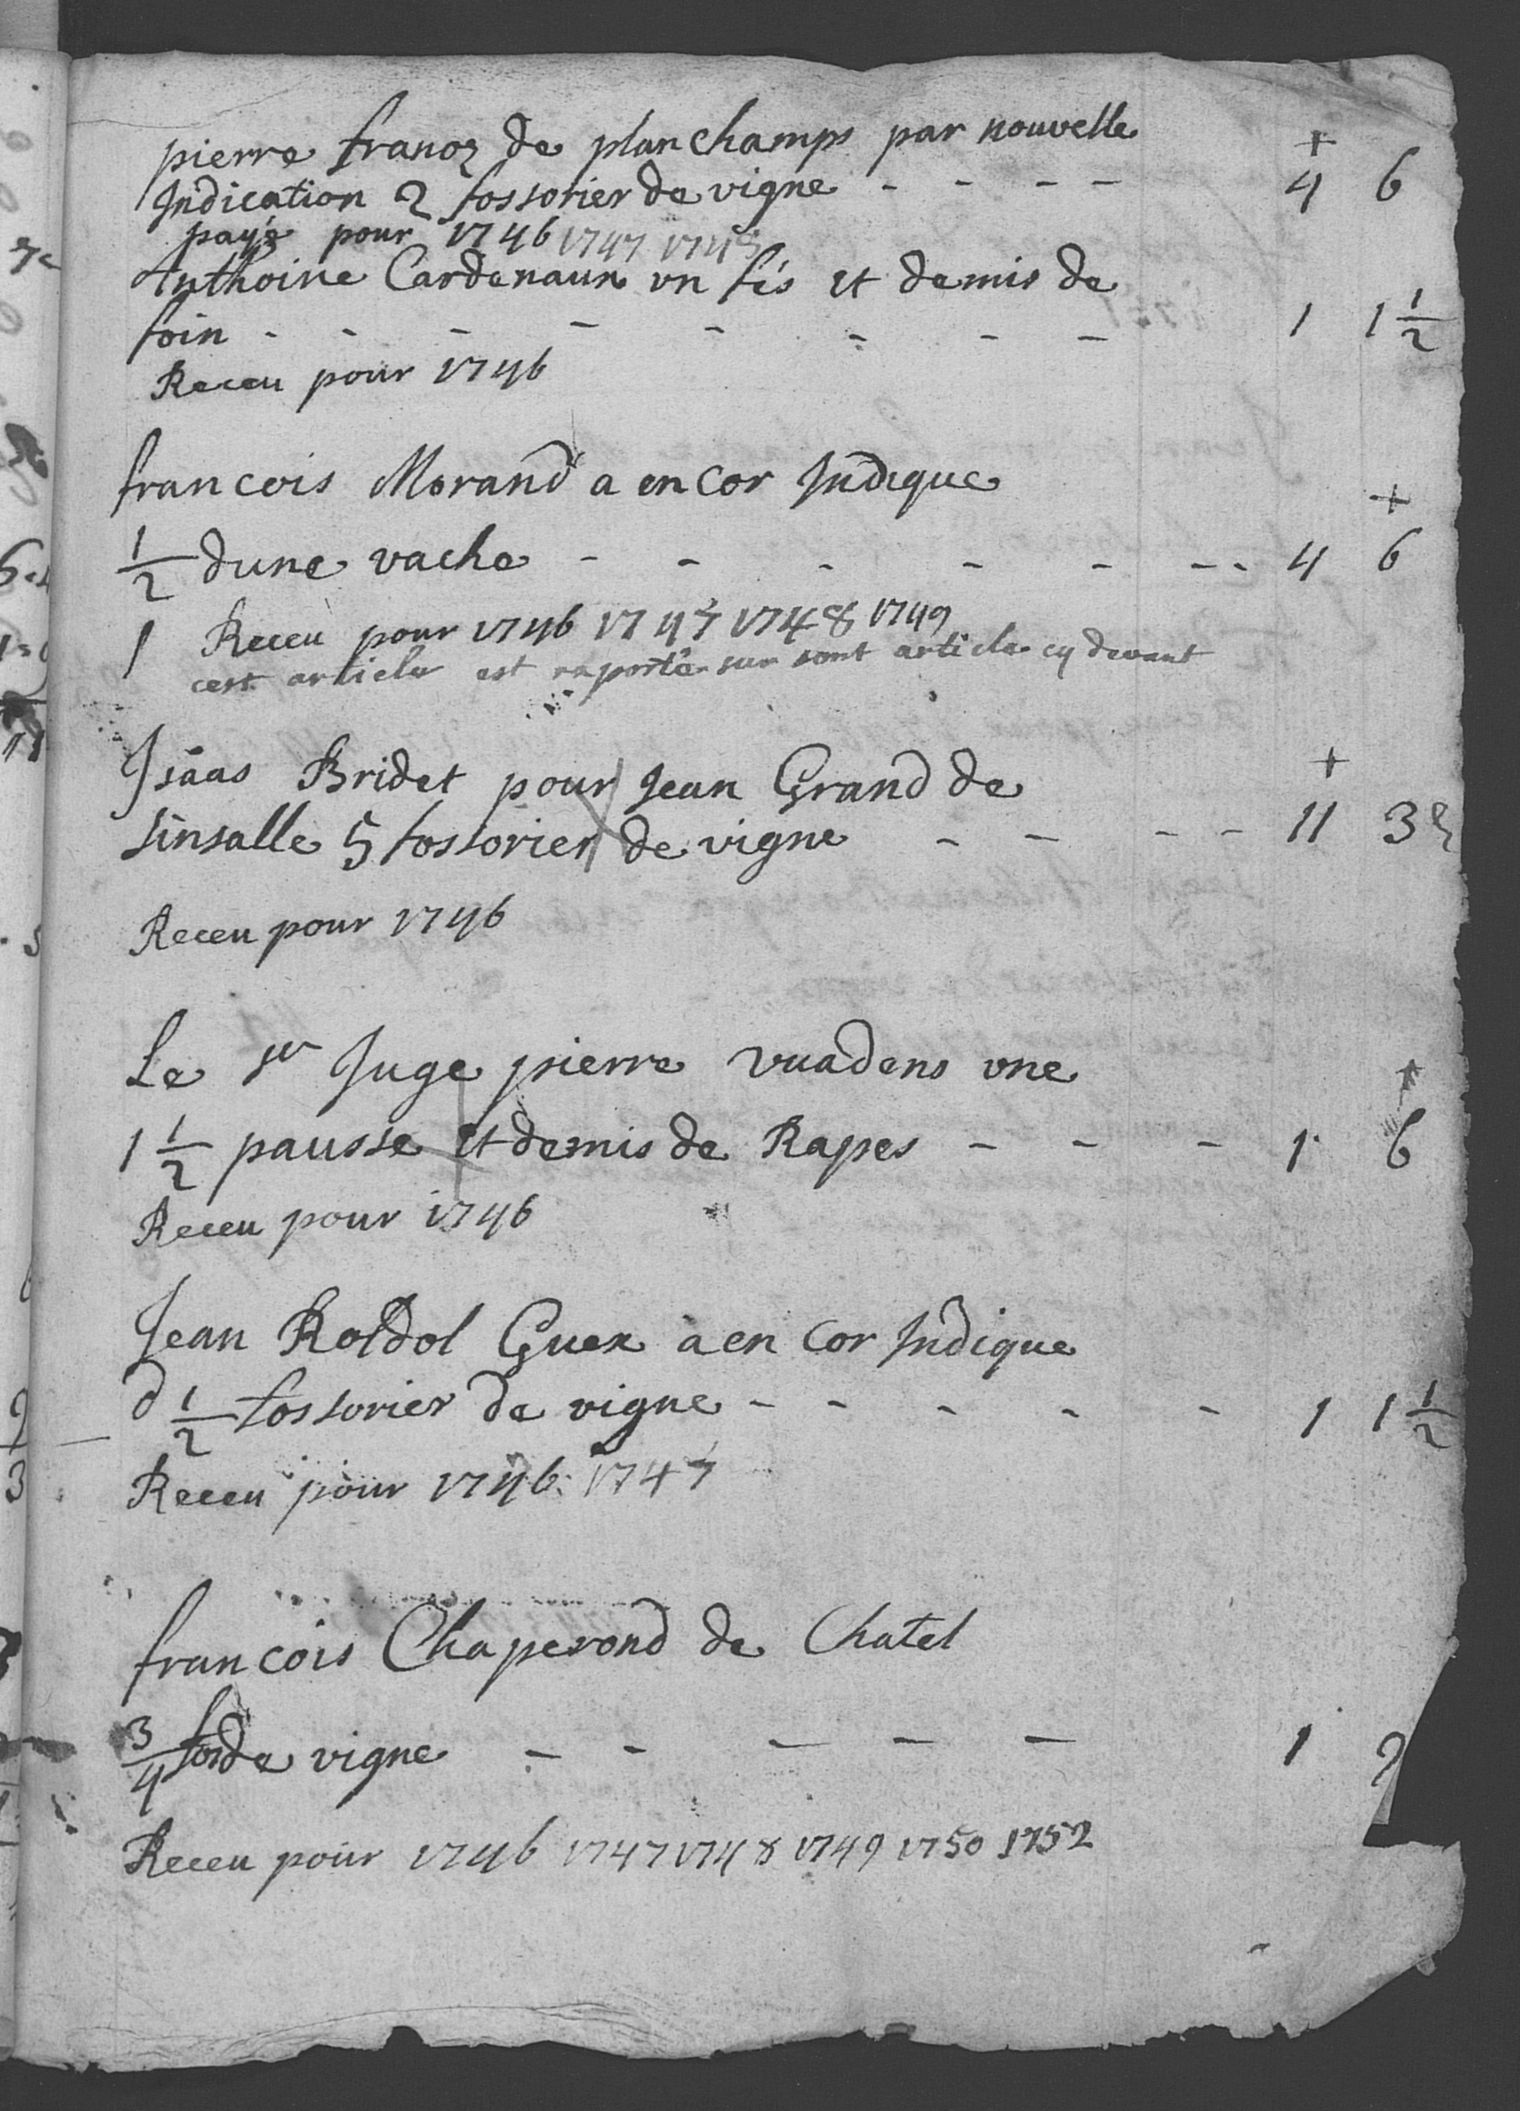 pierre franoz de planchamps par nouvelle
Indication 2 fossorier de vigne - - - - 4 6
payé pour 1746 1747 1748
Anthoine Cardenaux vn fés et demis de
foin - - - - - - - - 1 1 1/2
Receu pour 1746
francois Morand a en cor Indique
1/2 dune vache - - - - - - - 4 6
Receu pour 1746 1747 1748 1749
cest article est raporté sur sont article cy devant
Isáas Bridet pour Jean Grand de
sinsalle 5 fossorier de vigne - - - - 11 3
Receu pour 1746
Le sr Juge pierre vuadens vne
1 1/2 pausse et demis de Rapes - - - 1 6
Receu pour 1746
Jean Roldol Guex a en cor Indique
d 1/2 fossorier de vigne - - - - - 1 1 1/2
Receu pour 1746 1747
francois Chaperond de Chatel
3/4 fos de vigne - - - - - 1
Receu pour 1746 1747 1748 1749 1750 1752